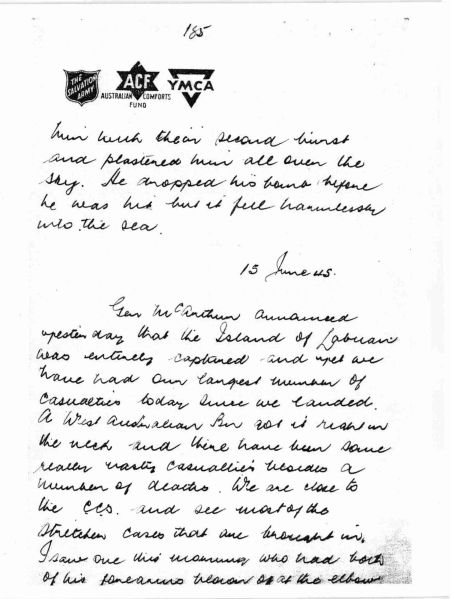 185
THE SALVATION ARMY
ACF
AUSTRALIAN COMFORTS FUND
YMCA
him with their second burst
and plastered him all over the
sky. He dropped his bomb before
he was hit but it fell harmlessly
into the sea.
15 June 45.
Gen McArthur announced
yesterday that the Island of Labuan
was entirely captured and yet we
have had our largest number of
casualties today since we landed.
A West Australian Bn got it right in
the neck and there have been some
really nasty casualties besides a
number of deaths. We are close to
the CCS. and see most of the
stretcher cases that are brought in.
I saw one this morning who had both
of his forearms blown off at the elbow